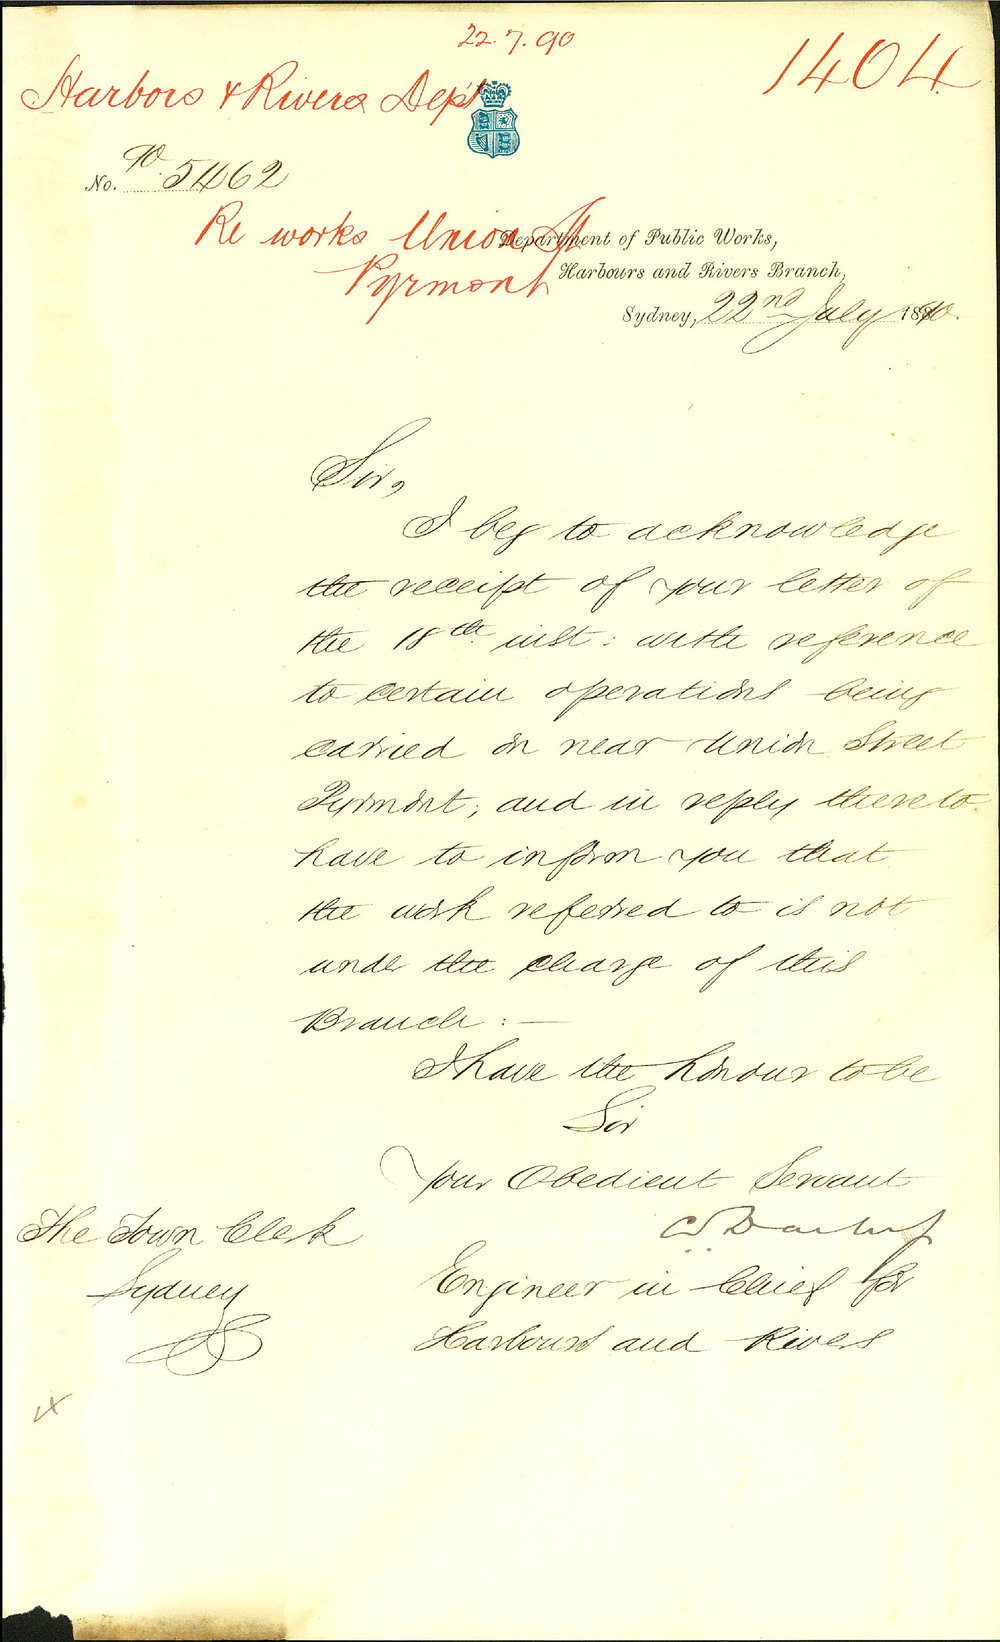 22.7.90
1404
Harbors & Rivers Dept
No. 90. 5462
Re works Union St
Pyrmont
Department of Public Works,
Harbours and Rivers Branch,
Sydney, 22nd July 1890.
Sir,
I beg to acknowledge
the receipt of your letter of
the 18th inst: with reference
to certain operations being
carried on near Union Street
Pyrmont; and in reply thereto
have to inform you that
the work referred to is not
under the charge of this
Branch:—
I have the honour to be
Sir
Your Obedient Servant
C W Darley
Engineer in Chief for
Harbours and Rivers
The Town Clerk
Sydney